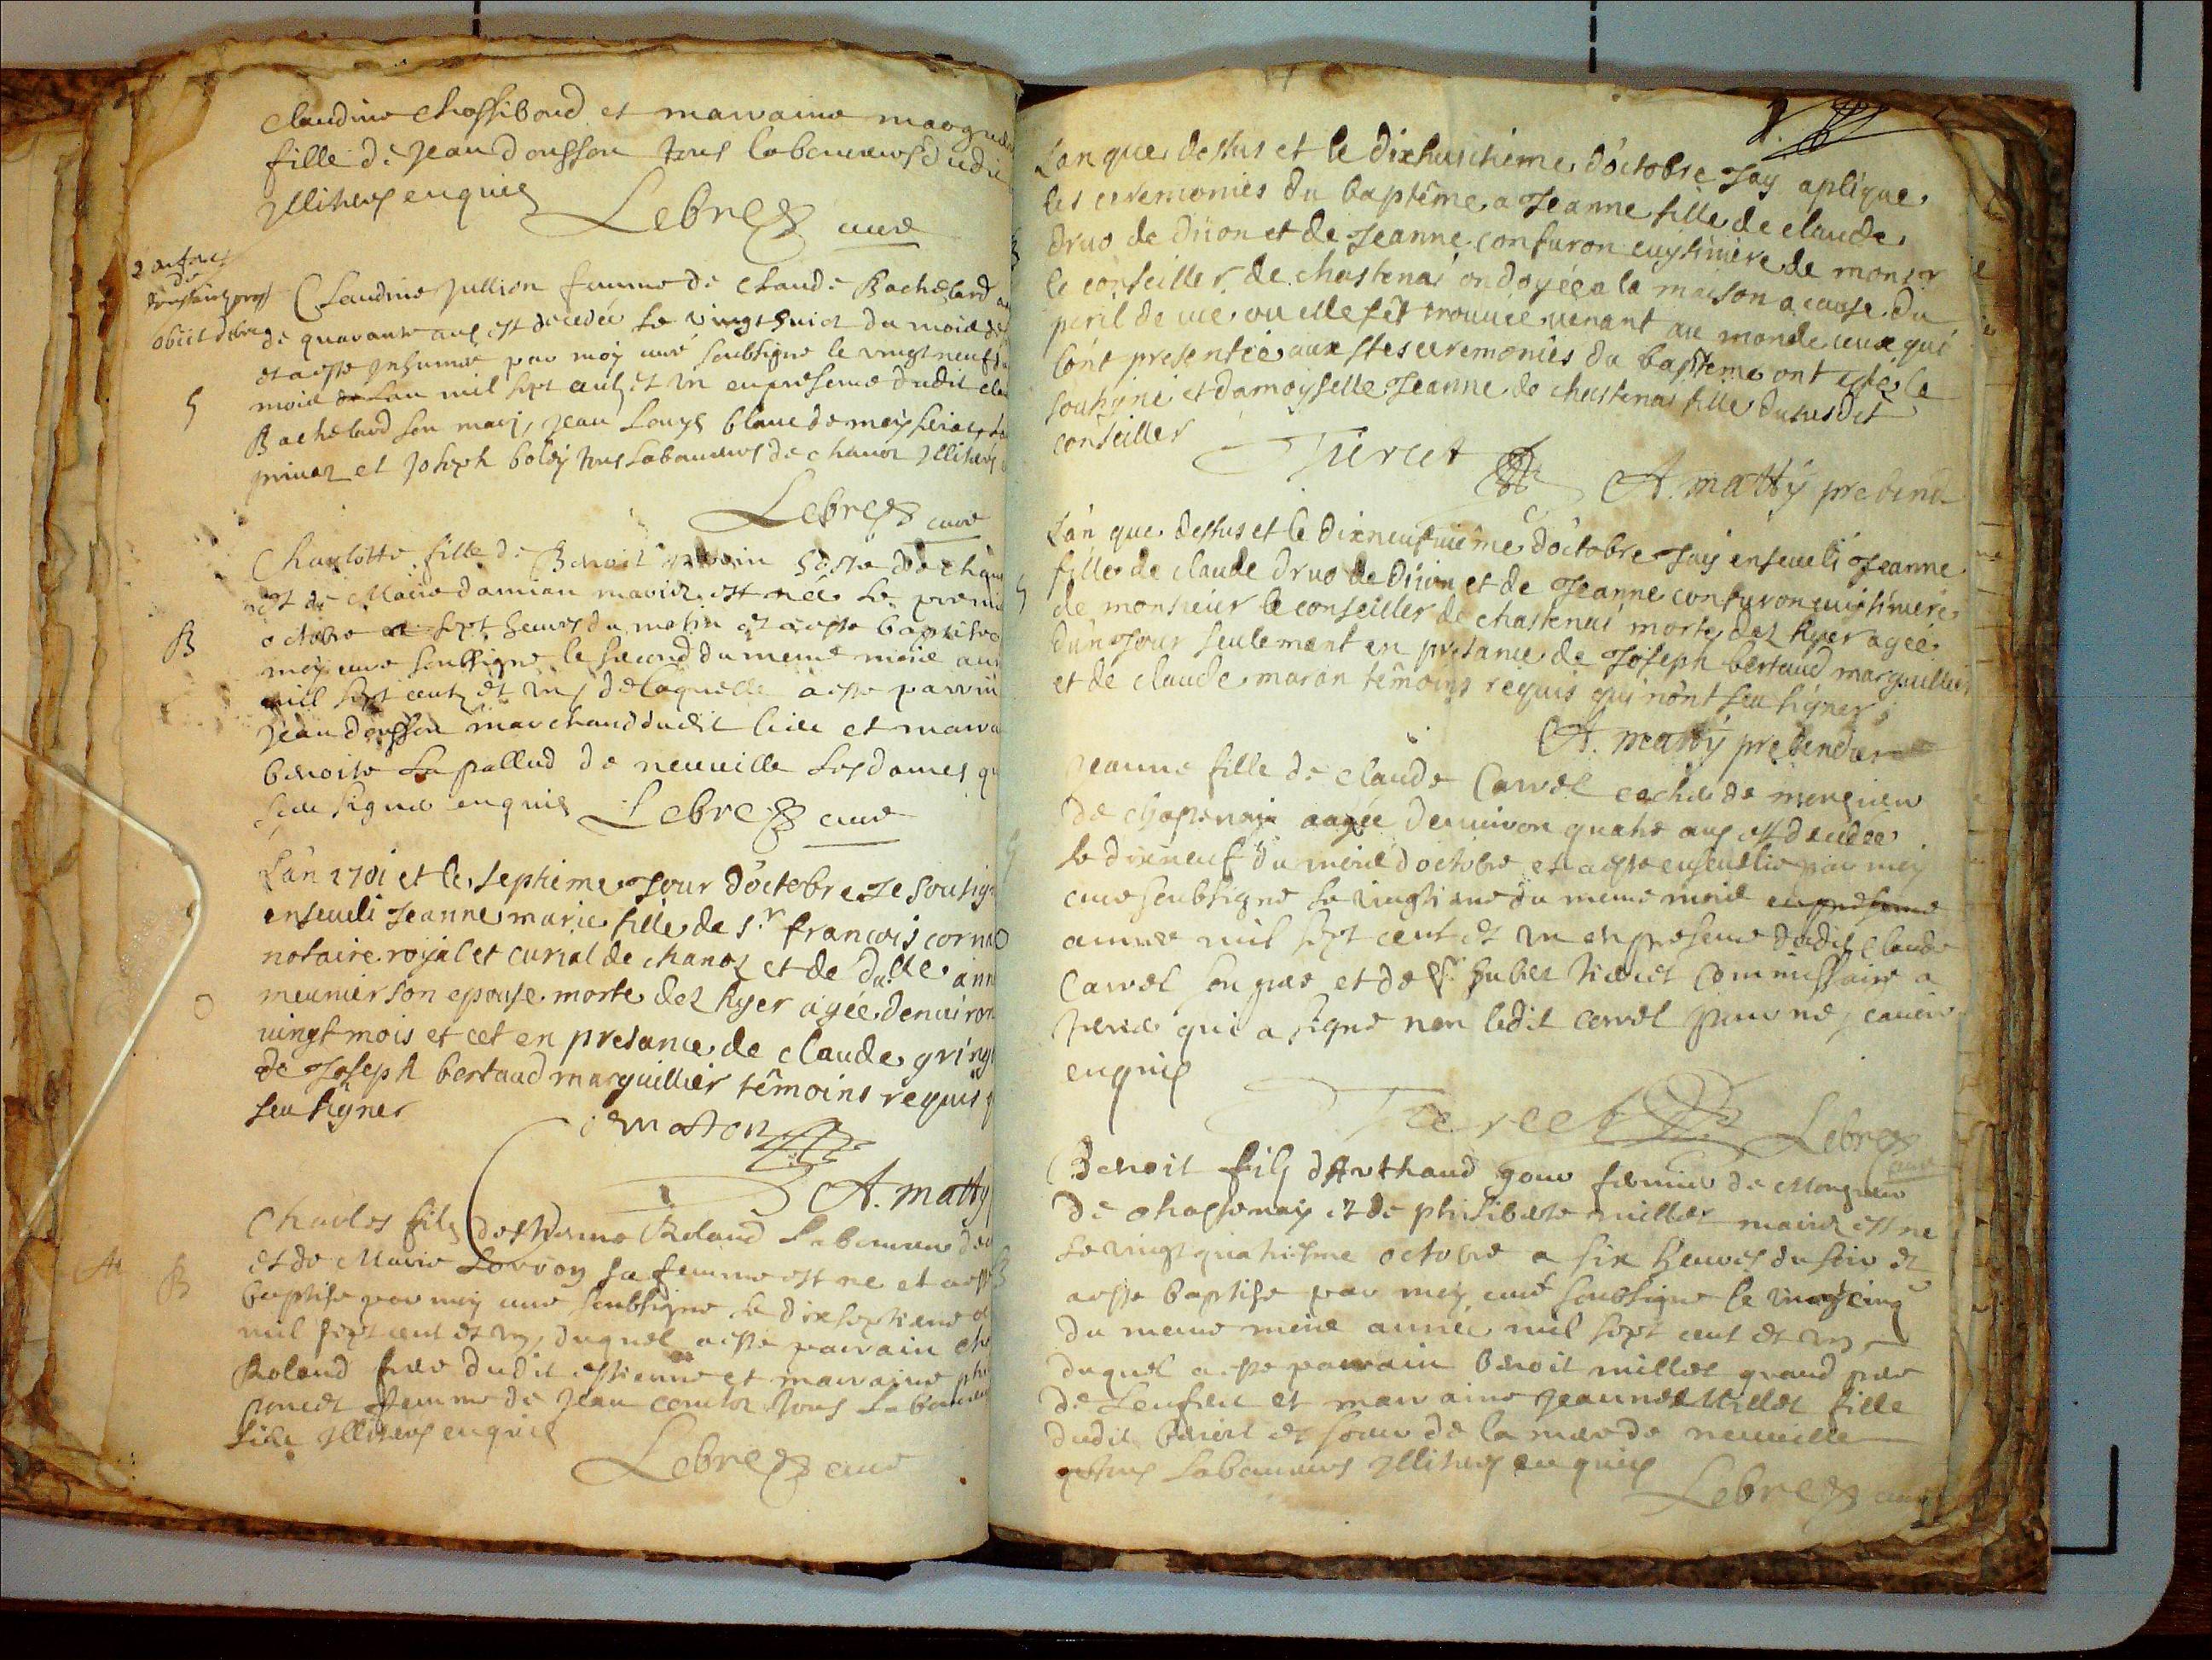 Claudine Chossiboud et marraine margue
fille de Jean Donsson tous laboureurs dudi
Illiteres enquis Lebre curé
2 enfens
de
obiit
Claudine Jullion femme de Claude Bachelard
de quarante ans est decedée le vingt huict du mois de
et a esté Inhumée par moy curé soubsigné le vingt neuf du
mois de lan mil sept cent et un en presence dudit cla
S
Bachelard son mary, Jean Louys blanc de
et Joseph boley tous laboureurs de chanoz Illiteres
Lebre curé
Charlotte fille de Benoit hoste de chano
et de Marie Damian mariez est née le premie
B
octobre a sept heures du matin et a esté baptisée
moy curé soubsigné le second du meme mois an
mill sept cent et un, de laquelle a esté parrain
Jean Donsson marchand dudit lieu et marra
benoite La pallud de neuville les dames
signer enquis Lebre curé
L'an 1701 et le septieme Jour d'octobre Je sousign
enseveli Jeanne marie fille de Sr. francois corna
notaire royal et curial de chanoz et de dlle. ann
meunier son epouse morte dez hyer agée denuiron
O
vingt mois et cet en presance de claude gring
de Joseph bertaud marguillier témoins requis
seu signer
A. matty
Charles fils destienne Roland Laboureur
et de Marie Lorron sa femme est né et a est
B
baptise par moy curé soubsigné le dixseptieme
mil sept cent et un, duquel a esté parrain cha
Roland frere dudit estienne et marraine
poncet femme de Jean tous Laboureur
Illiteres enquis
Lebre curé
L'an que dessus et le dixhuictiéme d'octobre Jay apliqué
les ceremonies du baptême a Jeanne fille de claude
druo de diion et de Jeanne confuron cuysiniére de monsr
le conseiller de chastenai ondoyée a la maison a cause du
peril de vie ou elle s'êt trouuée venant au monde ceux qui
l'ont presentée aux stes ceremonies du baptême ont esté le
soubsigné et damoyselle Jeanne de chastenai fille dususdit
conseiller
Tiercet A. matty prebend
L'an que dessus et le dixneufuiéme d'octobre Jay enseueli Jeanne
S
fille de claude druo de Diion et de Jeanne confuron cuysiniere
de monsieur le conseiller de chastenai morte dez hyer agée
d'un Jour seulement en presance de Joseph bertaud marguillier
et de claude maron témoins requis qui n'ont seu signer
A. matty prebendier
Jeanne fille de Claude Carrel cocher de monsieur
de Chastenay aagée denuiron quatre ans est decedée
le dixneuf du mois doctobre et a esté enseuelie par moy
curé soubsigné le vingtieme du meme mois en presence
année mil sept cent et un en presence dudit Claude
Carrel son pere et de Sr. hubert tiercet Commissaire a
terrier qui a signé non ledit carrel pour ne scauoir
enquis
Tiercet Lebre
curé
Benoit fils dArthaud gour fermier de Monsieur
de chastenay et de philiberte millet mariez est né
le vingt quatriesme octobre a six heures du soir et
a esté baptisé par moy curé soubsigné le vingt cinq
du meme mois année mil sept cent et un
duquel a esté parrain Benoit millet grand pere
de Lenfent et marraine Jeanne Millet fille
dudit benoit et soeur de la mere de neuville
tous Laboureurs Illiteres enquis
Lebre curé